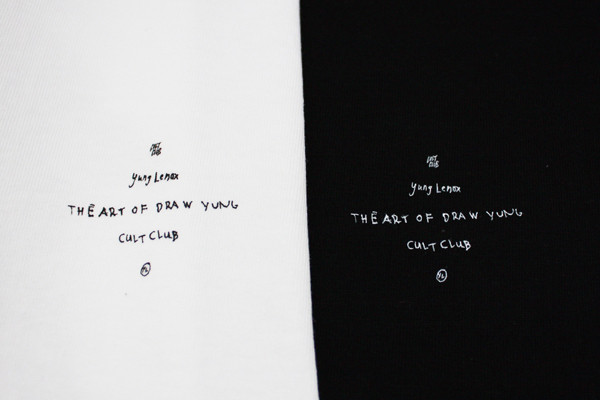 yung Lenox
THE ART OF DRAW YUNG
CULT CLUB
Yung Lenox
THE ART OF DRAW YUNG
CULT CLUB